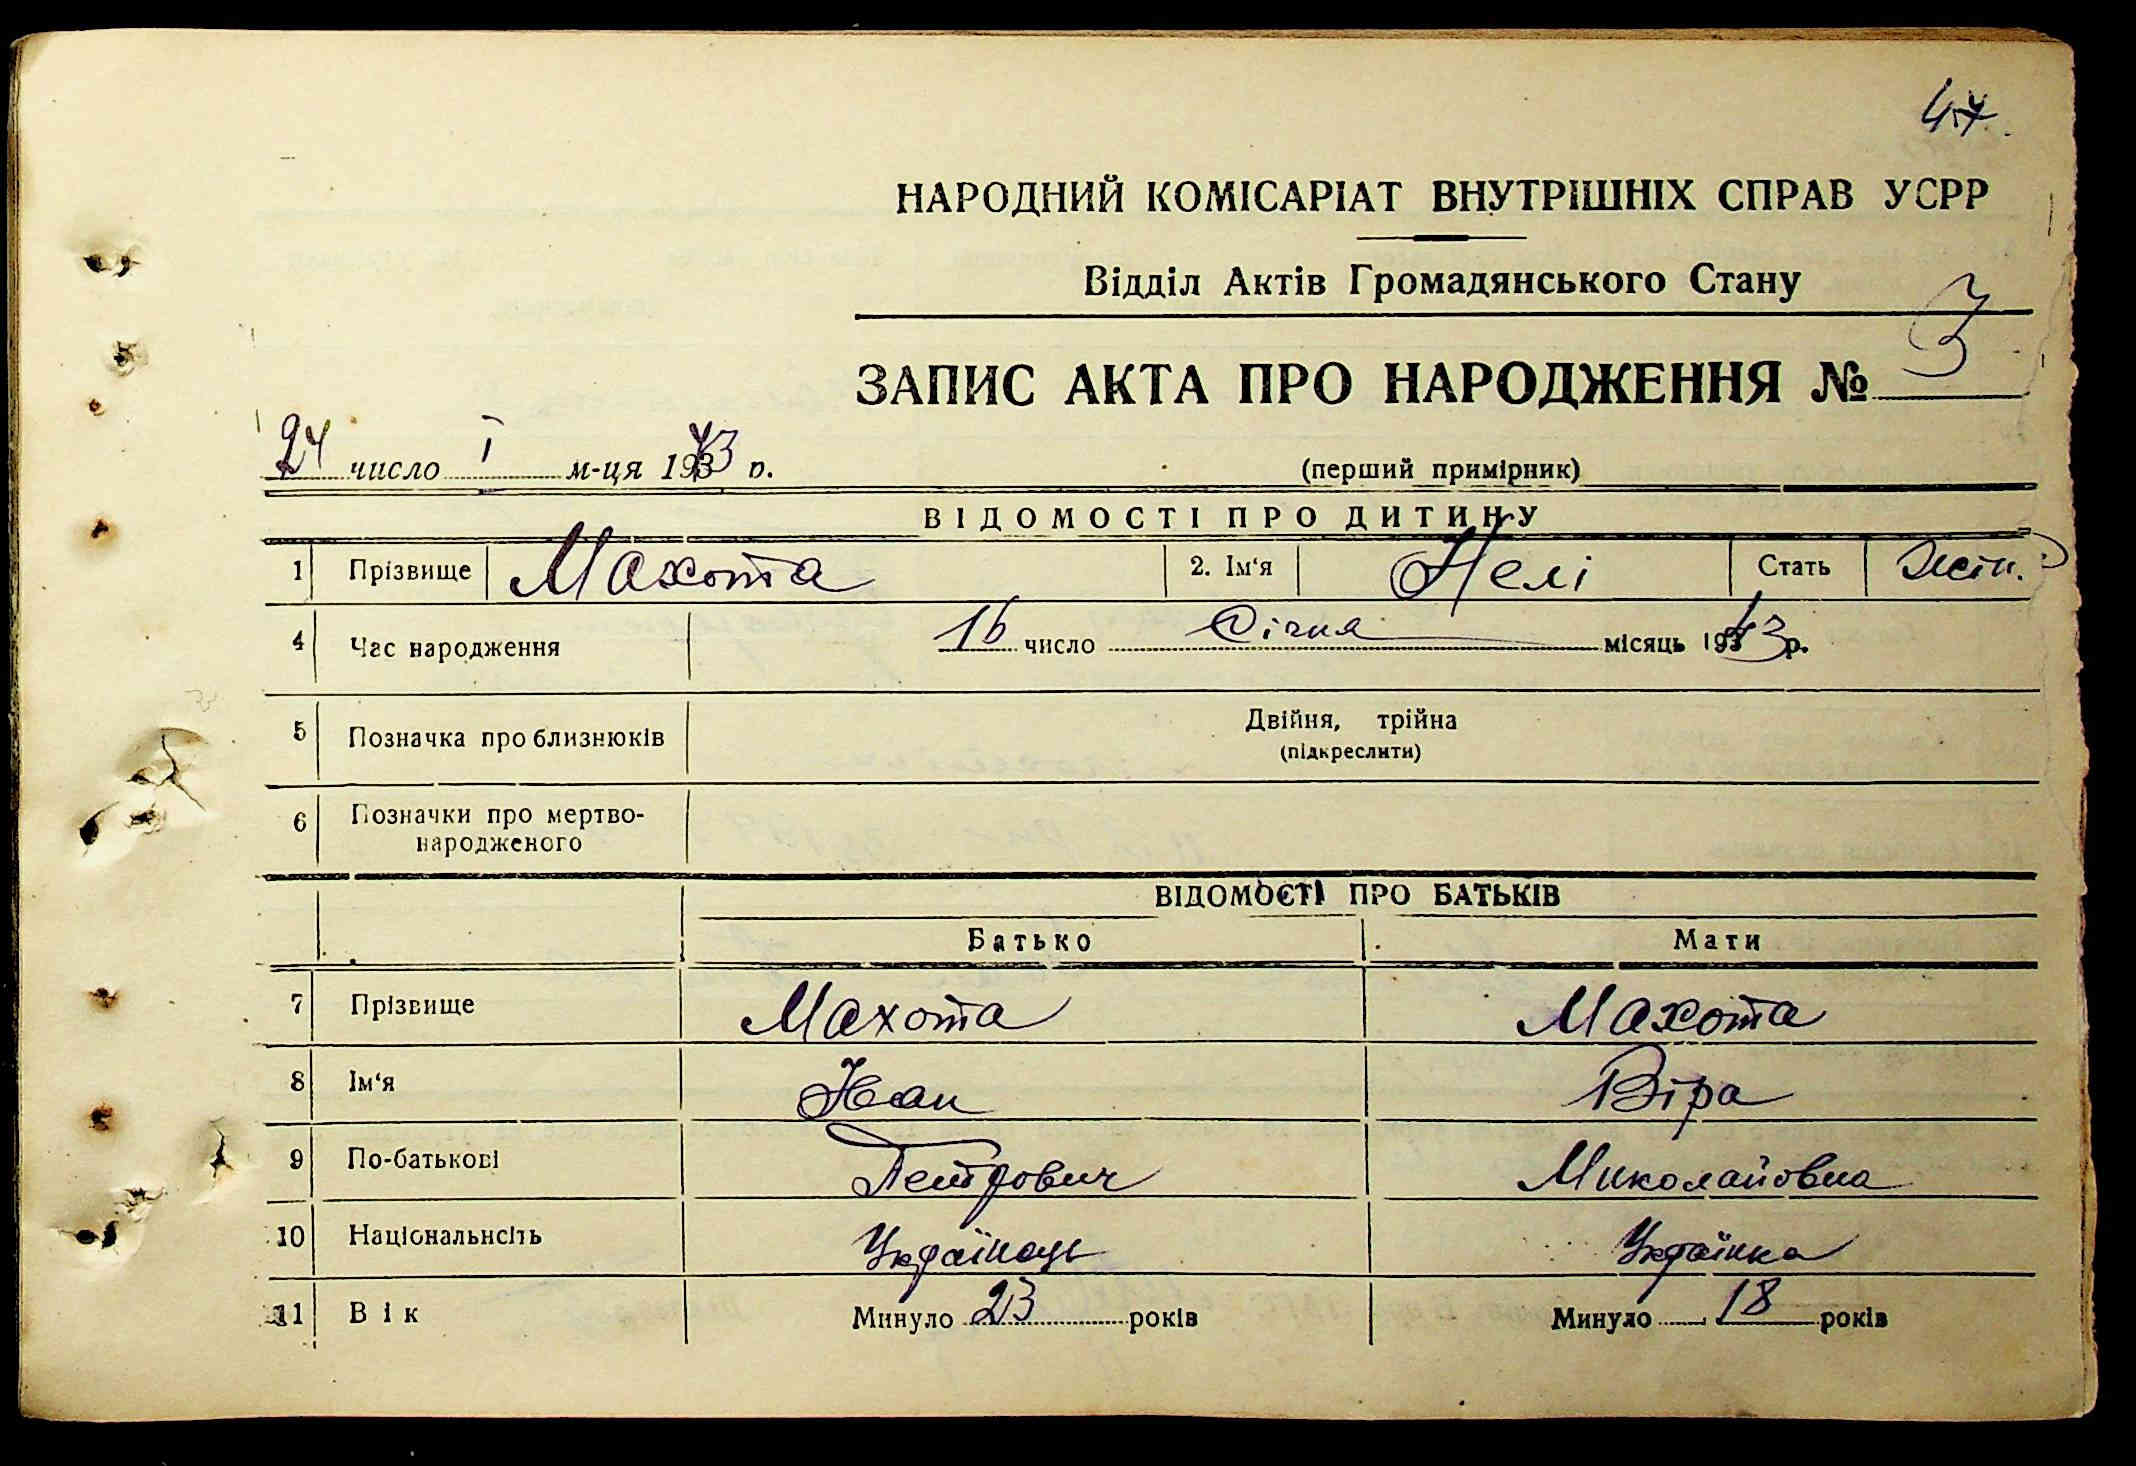 47
НАРОДНИЙ КОМІСАРІАТ ВНУТРІШНІХ СПРАВ УСРР
Відділ Актів Громадянського Стану
ЗАПИС АКТА ПРО НАРОДЖЕННЯ № 3
24 число I м-ця 1943 р.
(перший примірник)
ВІДОМОСТІ ПРО ДИТИНУ
1 Прізвище Махота 2. Ім'я Нелі Стать жін.
4 Час народження 16 число Січня місяць 1943 р.
5 Позначка про близнюків Двійня, трійна
(підкреслити)
6 Позначки про мертво-
народженого
ВІДОМОСТІ ПРО БАТЬКІВ
Батько Мати
7 Прізвище Махота Махота
8 Ім'я Іван Віра
9 По-батькові Петрович Миколайовна
10 Національність Українець Українка
11 Вік Минуло 23 років Минуло 18 років